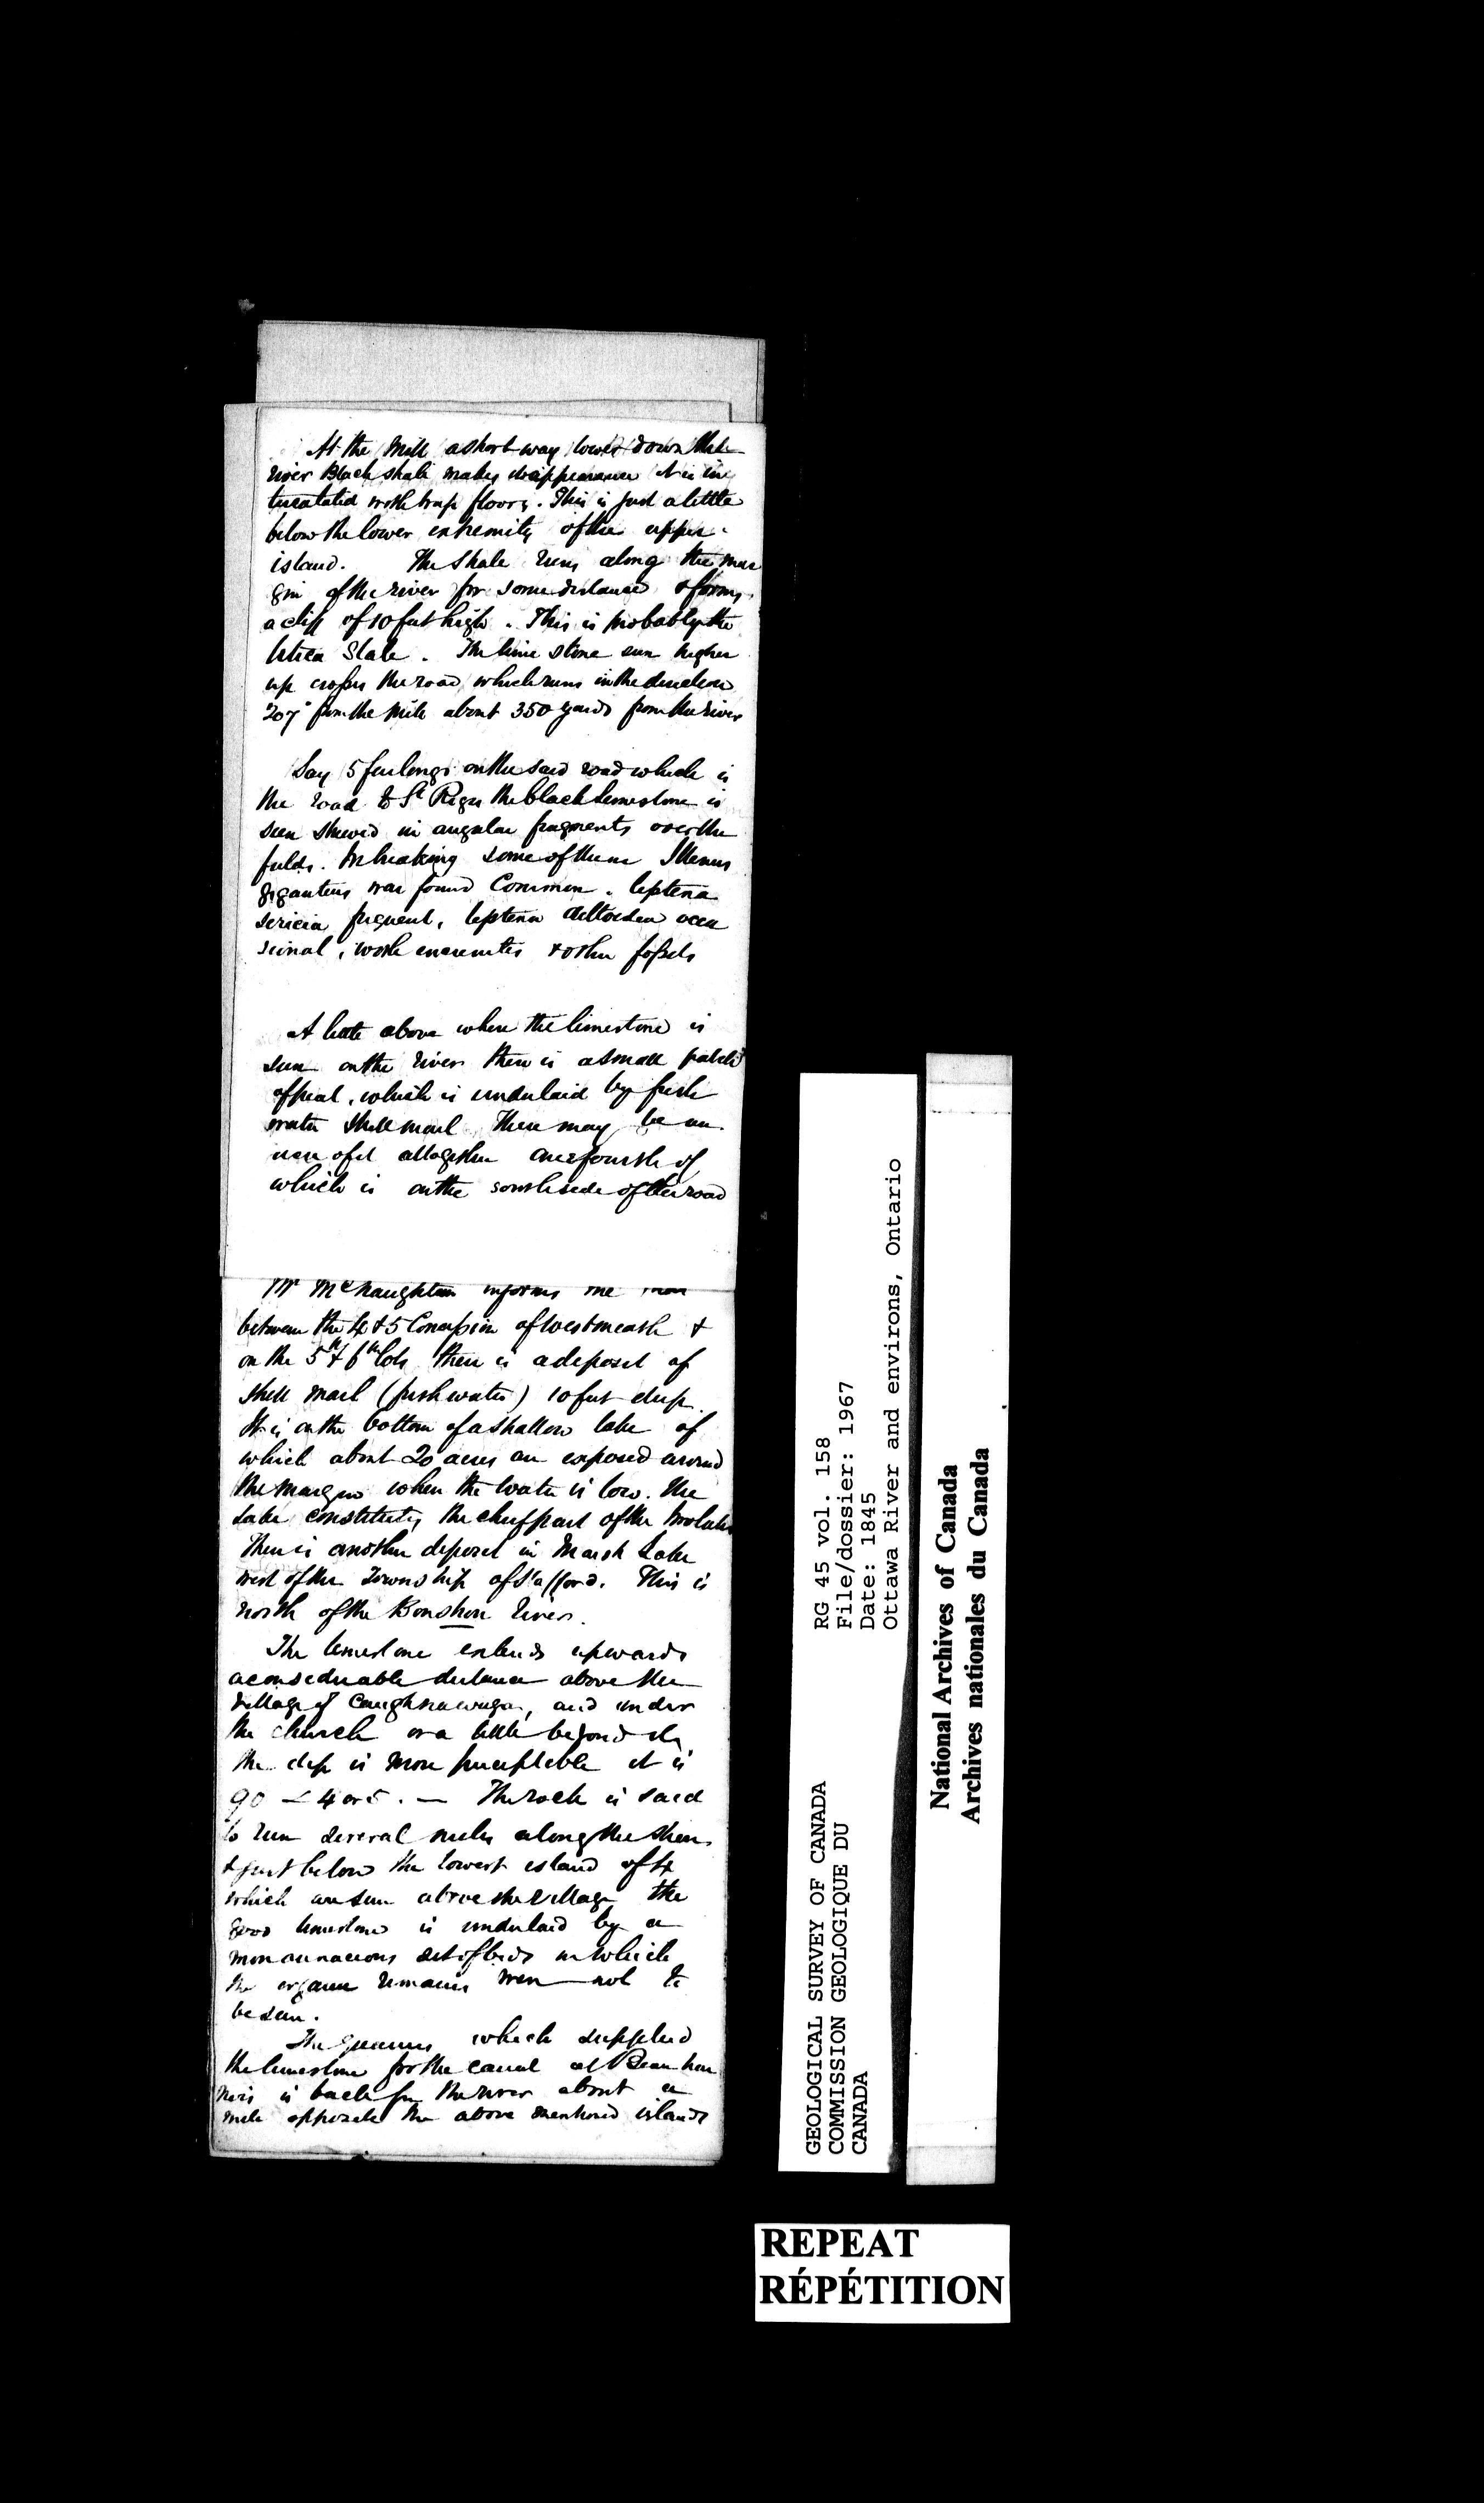 At the Mill a short way lower down the
river Black shale makes its appearance it is in
terstratified with trap floors. This is just a little
below the lower extremity of the upper
island. The Shale runs along the mar
gin of the river for some distance & forms
a cliff of 10 feet high. This is probably the
Utica Slate. The lime stone seen higher
up crosses the road which runs in the direction
207° from the Mill about 350 yards from the river
Say 5 furlongs on the said road which is
the road to St Regis the black limestone is
seen strewed in angular fragments over the
fields. In breaking some of them Illenus
giganteus was found Common. leptena
sericia frequent, leptena deltoidea occa
sional, with encrinites & other fossils
A little above where the limestone is
seen on the river there is a small patch
of peat, which is underlaid by fresh
water shell marl There may be an
acre of it altogether one fourth of
which is on the south side of the road
Mr McNaughton informs me that
between the 4 & 5 Concession of Westmeath &
on the 5th & 6th lots there is a deposit of
shell marl (fresh water) 10 feet deep.
It is on the bottom of a shallow lake of
which about 20 acres are exposed around
the margin when the water is low. The
Lake constitutes the chief part of the two lots
There is another deposit in Marsh Lake
west of the Township of Stafford. This is
north of the Bonshon River.
The limestone extends upwards
a considerable distance above the
Village of Caughnawaga, and under
the church or a little beyond it
the dip is more perceptible it is
90 < 4 or 5. — The rock is said
to run several miles along the shore
& just below the lowest island of 4
which are seen above the Village the
good limestone is underlaid by a
more arenaceous set of beds in which
the organic remains were not to
be seen.
The quarries which supplied
the limestone for the canal at Beauhar
nois is back from the river about a
mile opposite the above mentioned islands
RG 45 vol. 158
File/dossier: 1967
Date: 1845
Ottawa River and environs, Ontario
GEOLOGICAL SURVEY OF CANADA
COMMISSION GEOLOGIQUE DU
CANADA
National Archives of Canada
Archives nationales du Canada
REPEAT
RÉPÉTITION